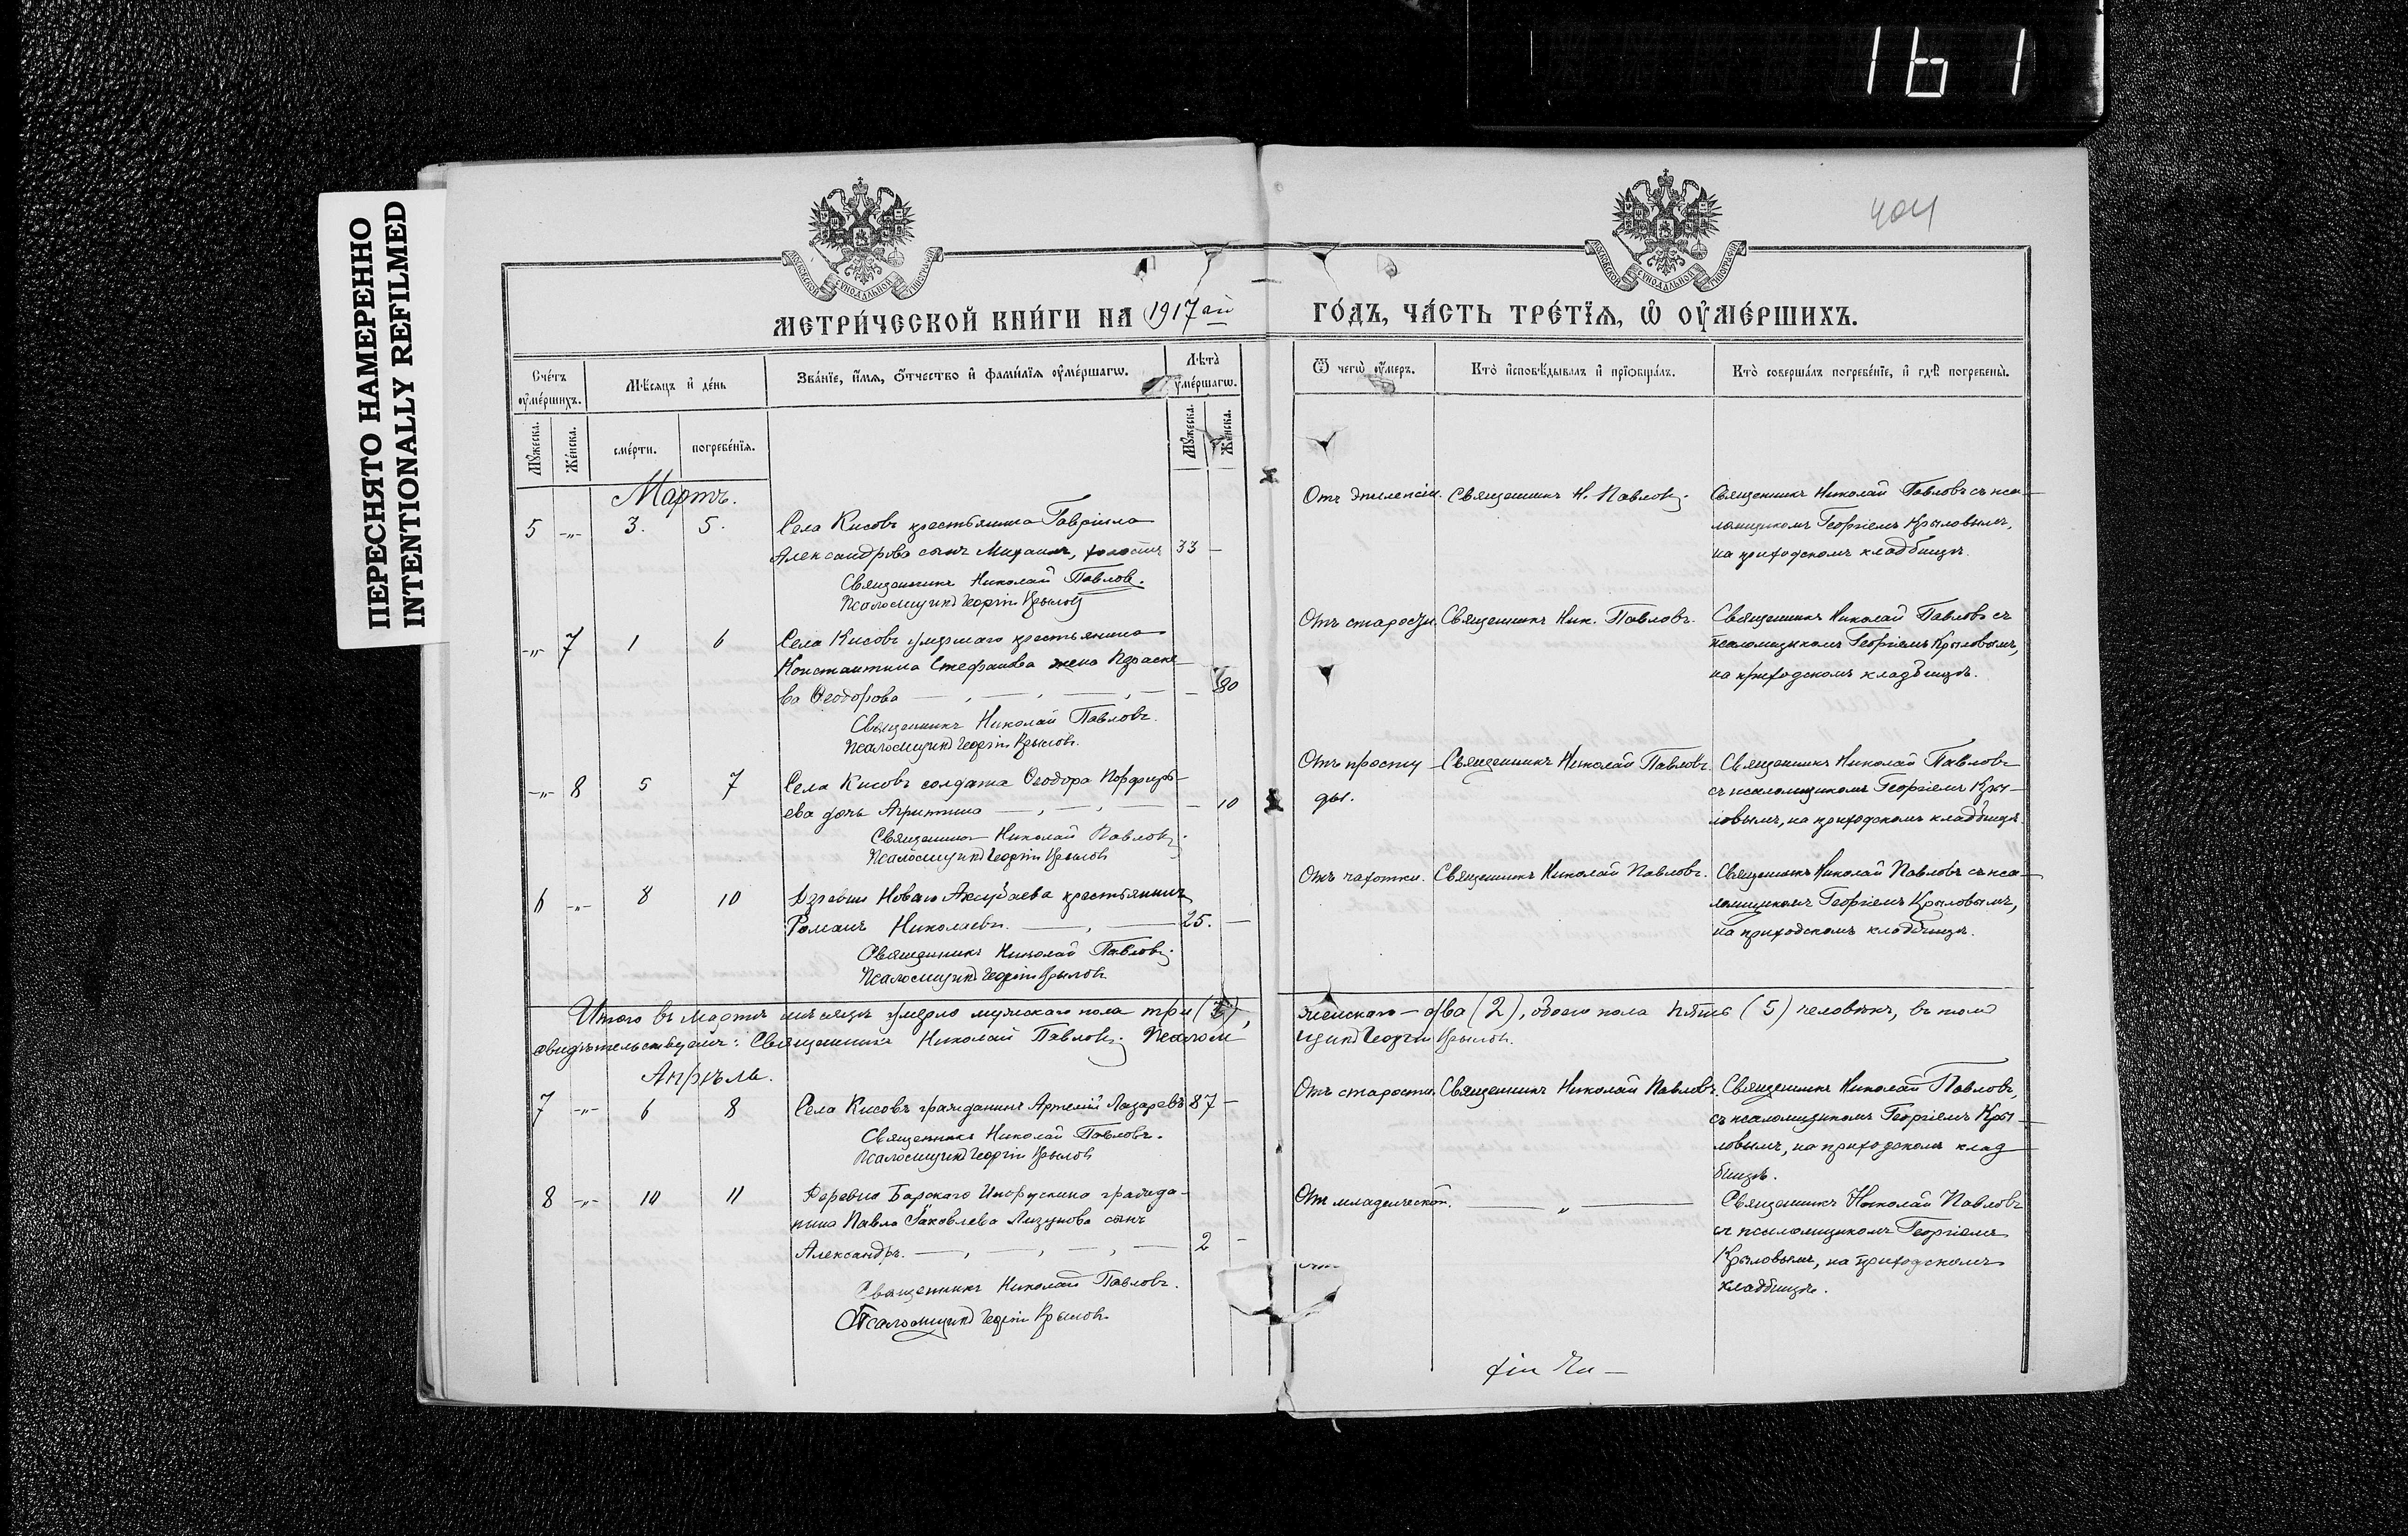 161
ПЕРЕСНЯТО НАМЕРЕННО
INTENTIONALLY REFILMED
404
МЕТРИ́ЧЕСКОЙ КНИ́ГИ НА 1917 ый
ГО́ДЪ, ЧА́СТЬ ТРЕ́ТЇѦ, Ѡ҆ ОУ҆МЕ́РШИХЪ.
Сче́тъ оу҆ме́ршихъ.
Мѣ́сѧцъ и҆ де́нь
Зва́нїе, и҆́мѧ, ѻ҆́тчество и҆ фами́лїѧ оу҆ме́ршагѡ.
Лѣ́та оу҆ме́ршагѡ.
Ѿ чегѡ̀ оу҆́меръ.
Кто̀ и҆сповѣ́дывалъ и҆ прїѡбща́лъ.
Кто̀ соверша́лъ погребе́нїе, и҆ гдѣ̀ погребены̀.
Мꙋ́жеска.
Же́нска.
сме́рти.
погребе́нїѧ.
Мꙋ́жеска.
Же́нска.
Мартъ.
5 -"- 3. 5. Села Кисовъ крестьянина Гавріила
Александрова сынъ Михаилъ, холостъ 33 —
Священникъ Николай Павловъ.
Псаломщикъ Георгій Крыловъ
Отъ эпилепсіи. Священникъ Н. Павловъ.
Священникъ Николай Павловъ съ пса-
ломщикомъ Георгіемъ Крыловымъ,
на приходскомъ кладбищѣ.
-"- 7 1 6 Села Кисовъ умершаго крестьянина
Константина Стефанова жена Параске-
ва Ѳеодорова — 80
Священникъ Николай Павловъ.
Псаломщикъ Георгій Крыловъ.
Отъ старости. Священникъ Ник. Павловъ.
Священникъ Николай Павловъ съ
псаломщикомъ Георгіемъ Крыловымъ,
на приходскомъ кладбищѣ.
-"- 8 5 7 Села Кисовъ солдата Ѳеодора Порфирь-
ева дочь — 10
Священникъ Николай Павловъ.
Псаломщикъ Георгій Крыловъ
Отъ просту-
ды.
Священникъ Николай Павловъ.
Священникъ Николай Павловъ
съ псаломщикомъ Георгіемъ Кры-
ловымъ, на приходскомъ кладбищѣ.
6 -"- 8 10 Деревни Новаго Аксубаева крестьянинъ
Романъ Николаевъ. 25. —
Священникъ Николай Павловъ.
Псаломщикъ Георгій Крыловъ
Отъ чахотки. Священникъ Николай Павловъ.
Священникъ Николай Павловъ съ пса-
ломщикомъ Георгіемъ Крыловымъ,
на приходскомъ кладбищѣ.
Итого въ мартѣ мѣсяцѣ умерло мужскаго пола три (3), женскаго — два (2), обоего пола пять (5) человѣкъ, въ томъ
свидѣтельствуемъ: Священникъ Николай Павловъ. Псаломщикъ Георгій Крыловъ.
Апрѣль.
7 -"- 6 8 Села Кисовъ гражданинъ Артемій Лазаревъ 87 —
Священникъ Николай Павловъ.
Псаломщикъ Георгій Крыловъ
Отъ старости. Священникъ Николай Павловъ.
Священникъ Николай Павловъ,
съ псаломщикомъ Георгіемъ Кры-
ловымъ, на приходскомъ клад-
бищѣ.
8 -"- 10 11 Деревни Барскаго гражда-
нина Павла Іаковлева Лизунова сынъ
Александръ. 2 —
Священникъ Николай Павловъ.
Псаломщикъ Георгій Крыловъ
От младенческой. — " —
Священникъ Николай Павловъ
съ псаломщикомъ Георгіемъ
Крыловымъ, на приходскомъ
кладбищѣ.